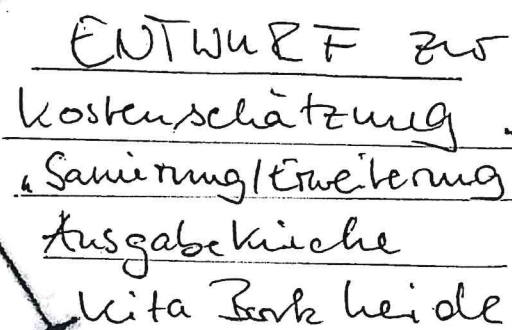 ENTWURF zur
Kostenschätzung
"Sanierung/Erweiterung
Ausgabeküche
Kita Borkheide